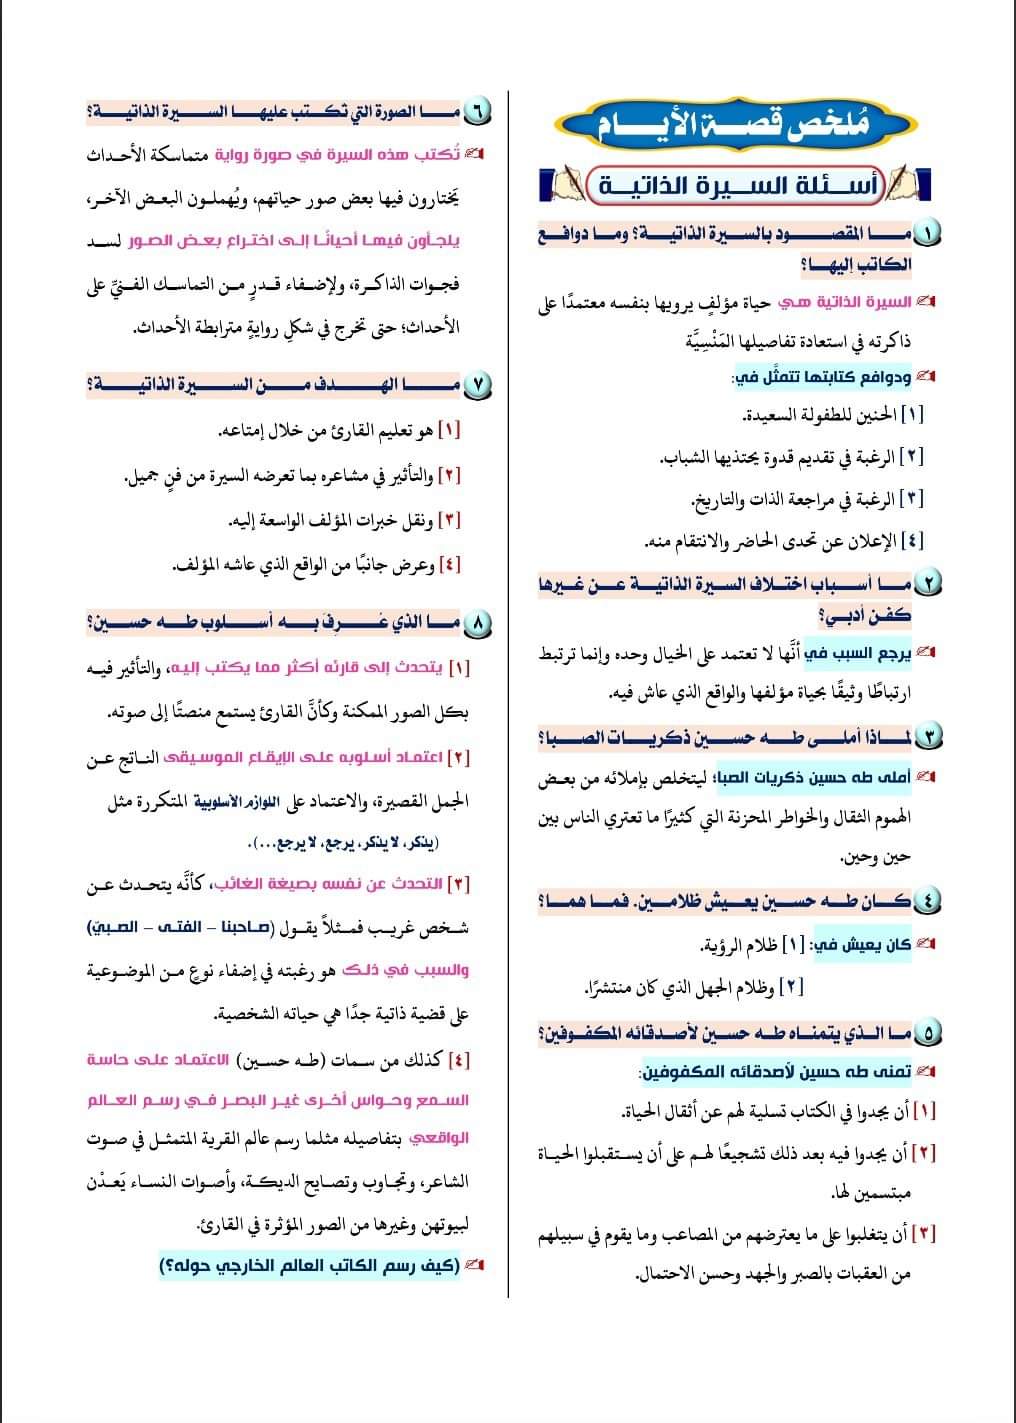 مُلخص قصة الأيام
أسئلة السيرة الذاتية
١ ما المقصود بالسيرة الذاتية؟ وما دوافع
الكاتب إليها؟
السيرة الذاتية هي حياة مؤلفٍ يرويها بنفسه معتمدًا على
ذاكرته في استعادة تفاصيلها المَنْسِيَّة
ودوافع كتابتها تتمثَّل في:
[١] الحنين للطفولة السعيدة.
[٢] الرغبة في تقديم قدوة يحتذيها الشباب.
[٣] الرغبة في مراجعة الذات والتاريخ.
[٤] الإعلان عن تحدى الحاضر والانتقام منه.
٢ ما أسباب اختلاف السيرة الذاتية عن غيرها
كفن أدبي؟
يرجع السبب في أنَّها لا تعتمد على الخيال وحده وإنما ترتبط
ارتباطًا وثيقًا بحياة مؤلفها والواقع الذي عاش فيه.
٣ لماذا أملى طه حسين ذكريات الصبا؟
أملى طه حسين ذكريات الصبا؛ ليتخلص بإملائه من بعض
الهموم الثقال والخواطر المحزنة التي كثيرًا ما تعتري الناس بين
حين وحين.
٤ كان طه حسين يعيش ظلامين. فما هما؟
كان يعيش في: [١] ظلام الرؤية.
[٢] وظلام الجهل الذي كان منتشرًا.
٥ ما الذي يتمناه طه حسين لأصدقائه المكفوفين؟
تمنى طه حسين لأصدقائه المكفوفين:
[١] أن يجدوا في الكتاب تسلية لهم عن أثقال الحياة.
[٢] أن يجدوا فيه بعد ذلك تشجيعًا لهم على أن يستقبلوا الحياة
مبتسمين لها.
[٣] أن يتغلبوا على ما يعترضهم من المصاعب وما يقوم في سبيلهم
من العقبات بالصبر والجهد وحسن الاحتمال.
٦ ما الصورة التي تُكتب عليها السيرة الذاتية؟
تُكتب هذه السيرة في صورة رواية متماسكة الأحداث
يَختارون فيها بعض صور حياتهم، ويُهملون البعض الآخر،
يلجأون فيها أحيانًا إلى اختراع بعض الصور لسد
فجوات الذاكرة، ولإضفاء قدرٍ من التماسك الفنيِّ على
الأحداث؛ حتى تخرج في شكلِ روايةٍ مترابطة الأحداث.
٧ ما الهدف من السيرة الذاتية؟
[١] هو تعليم القارئ من خلال إمتاعه.
[٢] والتأثير في مشاعره بما تعرضه السيرة من فنٍ جميل.
[٣] ونقل خبرات المؤلف الواسعة إليه.
[٤] وعرض جانبًا من الواقع الذي عاشه المؤلف.
٨ ما الذي عُرِفَ به أسلوب طه حسين؟
[١] يتحدث إلى قارئه أكثر مما يكتب إليه، والتأثير فيه
بكل الصور الممكنة وكأنَّ القارئ يستمع منصتًا إلى صوته.
[٢] اعتماد أسلوبه على الإيقاع الموسيقى الناتج عن
الجمل القصيرة، والاعتماد على اللوازم الأسلوبية المتكررة مثل
(يذكر، لا يذكر، يرجع، لا يرجع...).
[٣] التحدث عن نفسه بصيغة الغائب، كأنَّه يتحدث عن
شخص غريب فمثلاً يقول (صاحبنا - الفتى - الصبيّ)
والسبب في ذلك هو رغبته في إضفاء نوعٍ من الموضوعية
على قضية ذاتية جدًا هي حياته الشخصية.
[٤] كذلك من سمات (طه حسين) الاعتماد على حاسة
السمع وحواس أخرى غير البصر في رسم العالم
الواقعي بتفاصيله مثلما رسم عالم القرية المتمثل في صوت
الشاعر، وتجاوب وتصايح الديكة، وأصوات النساء يَعدْن
لبيوتهن وغيرها من الصور المؤثرة في القارئ.
(كيف رسم الكاتب العالم الخارجي حوله؟)